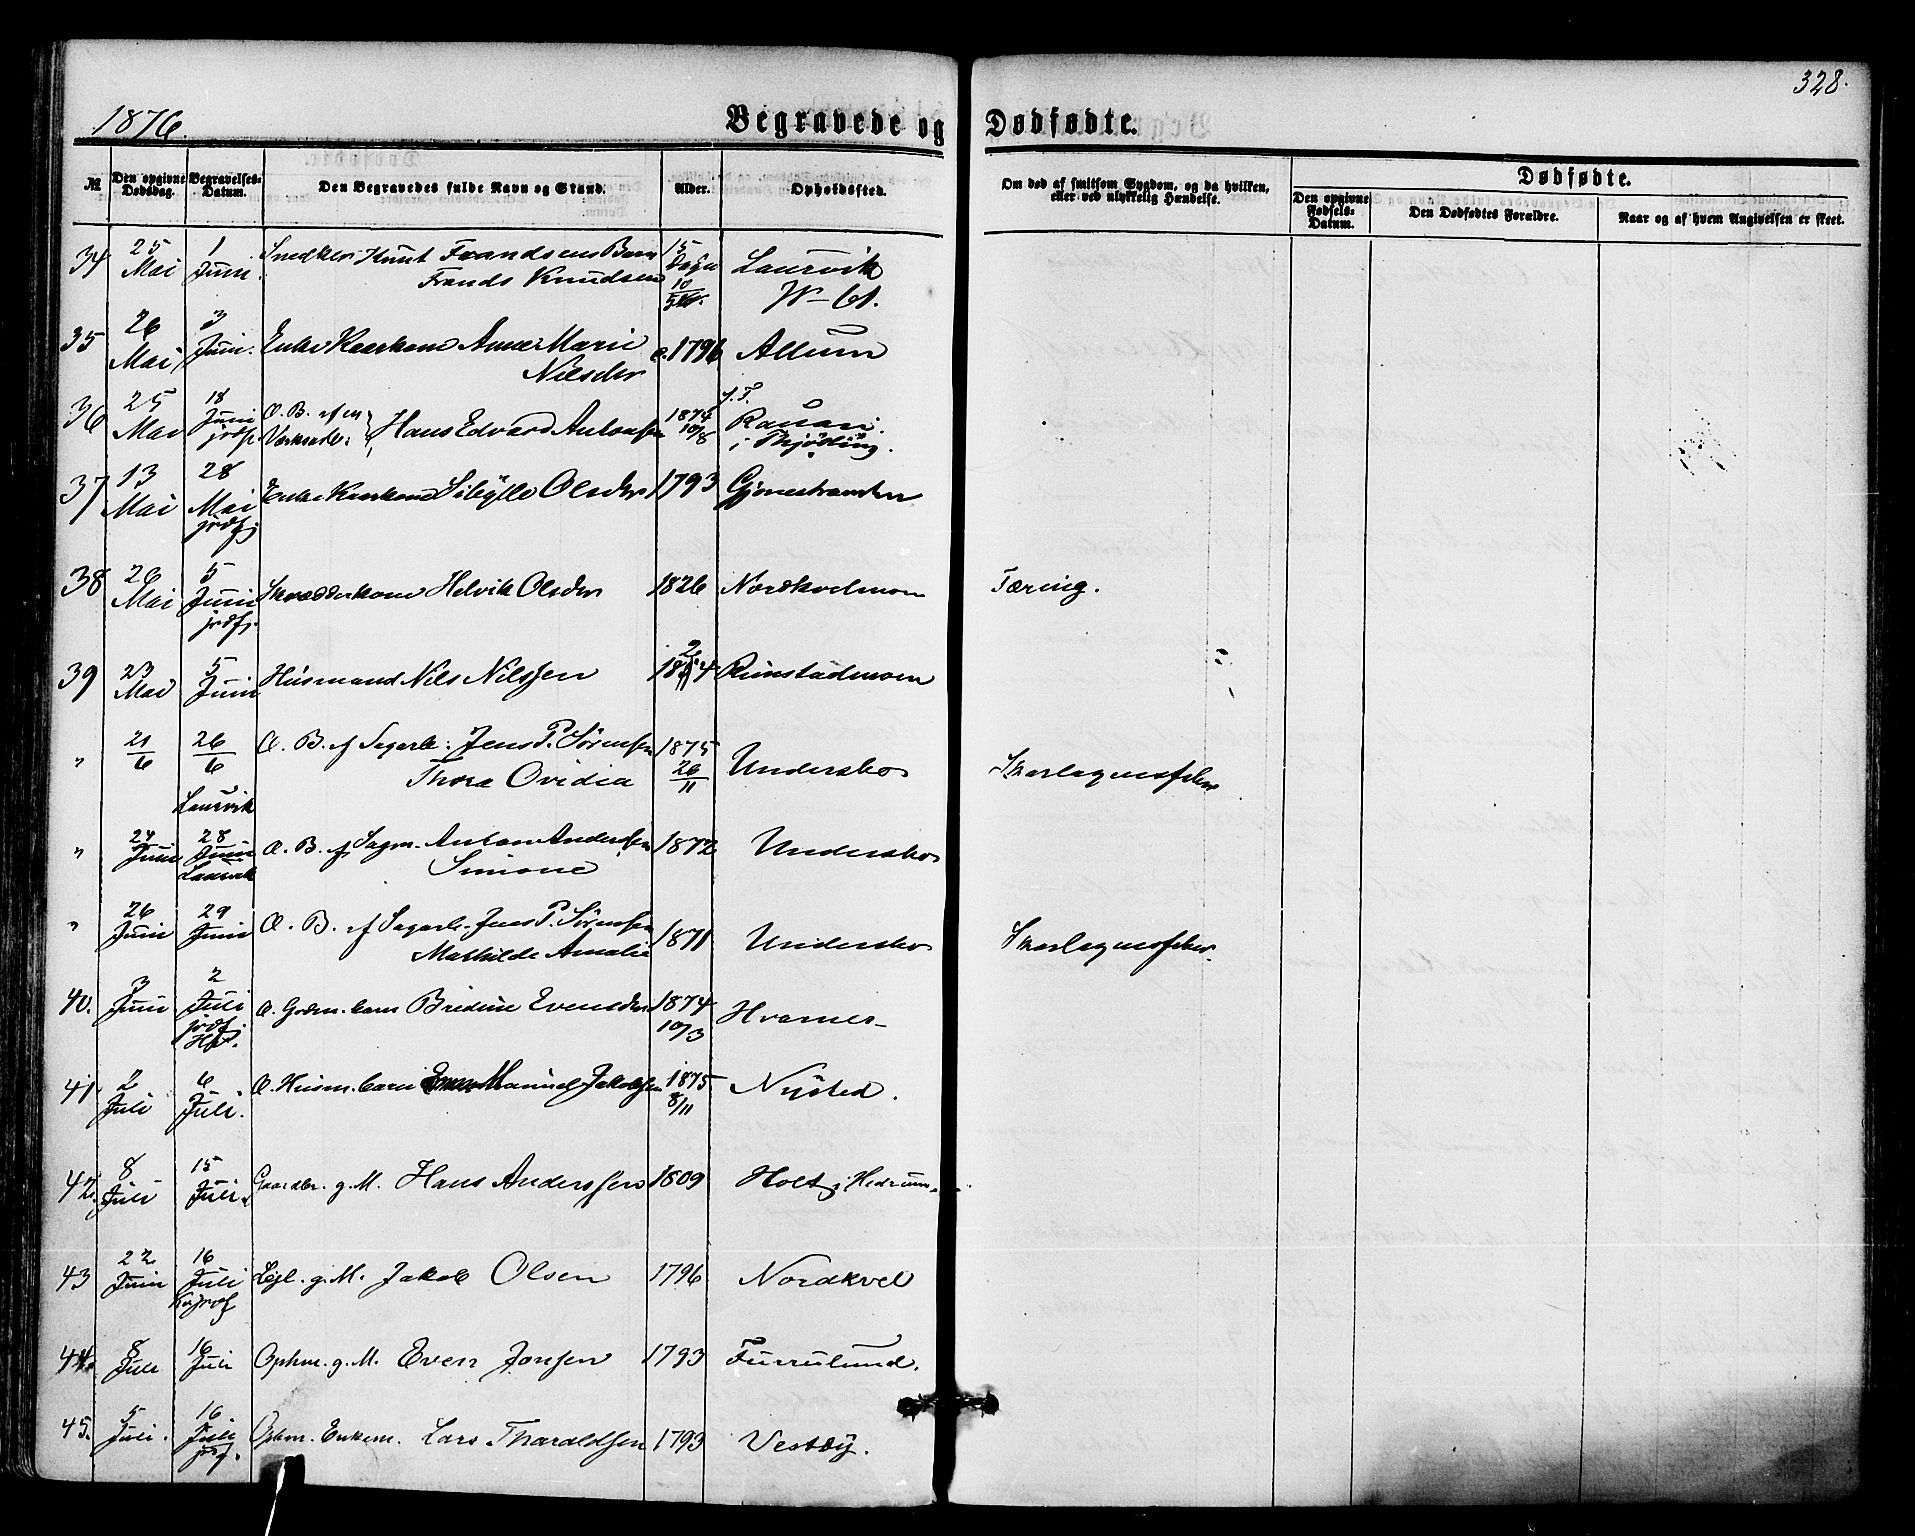 328.
1876.
Begravede og Dødfødte.
№
Den opgivne Dødsdag.
Begravelses-Datum.
Den Begravedes fulde Navn og Stand.
Alder.
Opholdssted.
Om død af smitsom Sygdom, og da hvilken, eller ved ulykkelig Hændelse.
Dødfødte.
Den opgivne Fødsels-Datum.
Den Dødfødtes Forældre.
Naar og af hvem Angivelsen er skeet.
34 25 Mai 1 Juni Snedker Knut Frandsens Barn 15 Dage Laurvik
Frands Knudsen 10/5
35 26 Mai 3 Juni. Enke Kaarkone Anne Marie 1796 Allum
Nilsdtr
36 25 Mai 18 Juni jrdf Æ. B. af en Hans Edvard Antonsen 1874 10/8 Rauan
i Thjødling.
37 13 Mai 28 Mai jrdf. Enke Kaarkone Sibylle Olsdtr 1793 Gjonestranden
38 26 Mai 5 Juni jrdf. Skrædderkone Helvik Olsdtr 1826 Nordkvelmoen Tæring.
39 23 Mai 5 Juni Husmand Nils Nilssen Rimstadmoen
" 21/6 26/6 Laurvik Æ. B. af Sagarb. Jens P. Sørensen 1875 26/11 Undersbo Skarlagensfeber
Thora Ovidia
" 24 Juni 28 Juni Laurvik Æ. B. af Sagm. Anton Anderssen 1872 Undersbo
Simone
" 26 Juni 29 Juni Æ. B. af Sagarb. Jens P. Sørensen 1871 Undersbo Skarlagensfeber.
Mathilde Amalie
40. 3 Juni 2 Juli jrdf. Æ. Grdm. barn Bredine Evensdtr 1874 10/3 Hvarnes
41 2 Juli 6 Juli. Æ. Husm. barn Manuel Jakobsen 1875 8/11 Nysted.
42. 8 Juli 15 Juli Gaardbr. g. M. Hans Anderssen 1809 Holt i Hedrum
43 22 Juni 16 Juli g. M. Jakob Olsen 1796 Nordkvel
44. 8 Juli 16 Juli Ophm. g. M. Even Jonsen 1793 Furrulund.
45. 5 Juli. 16 Juli jrdf. Ophm. Enkem. Lars Tharaldsen 1793 Vestby.